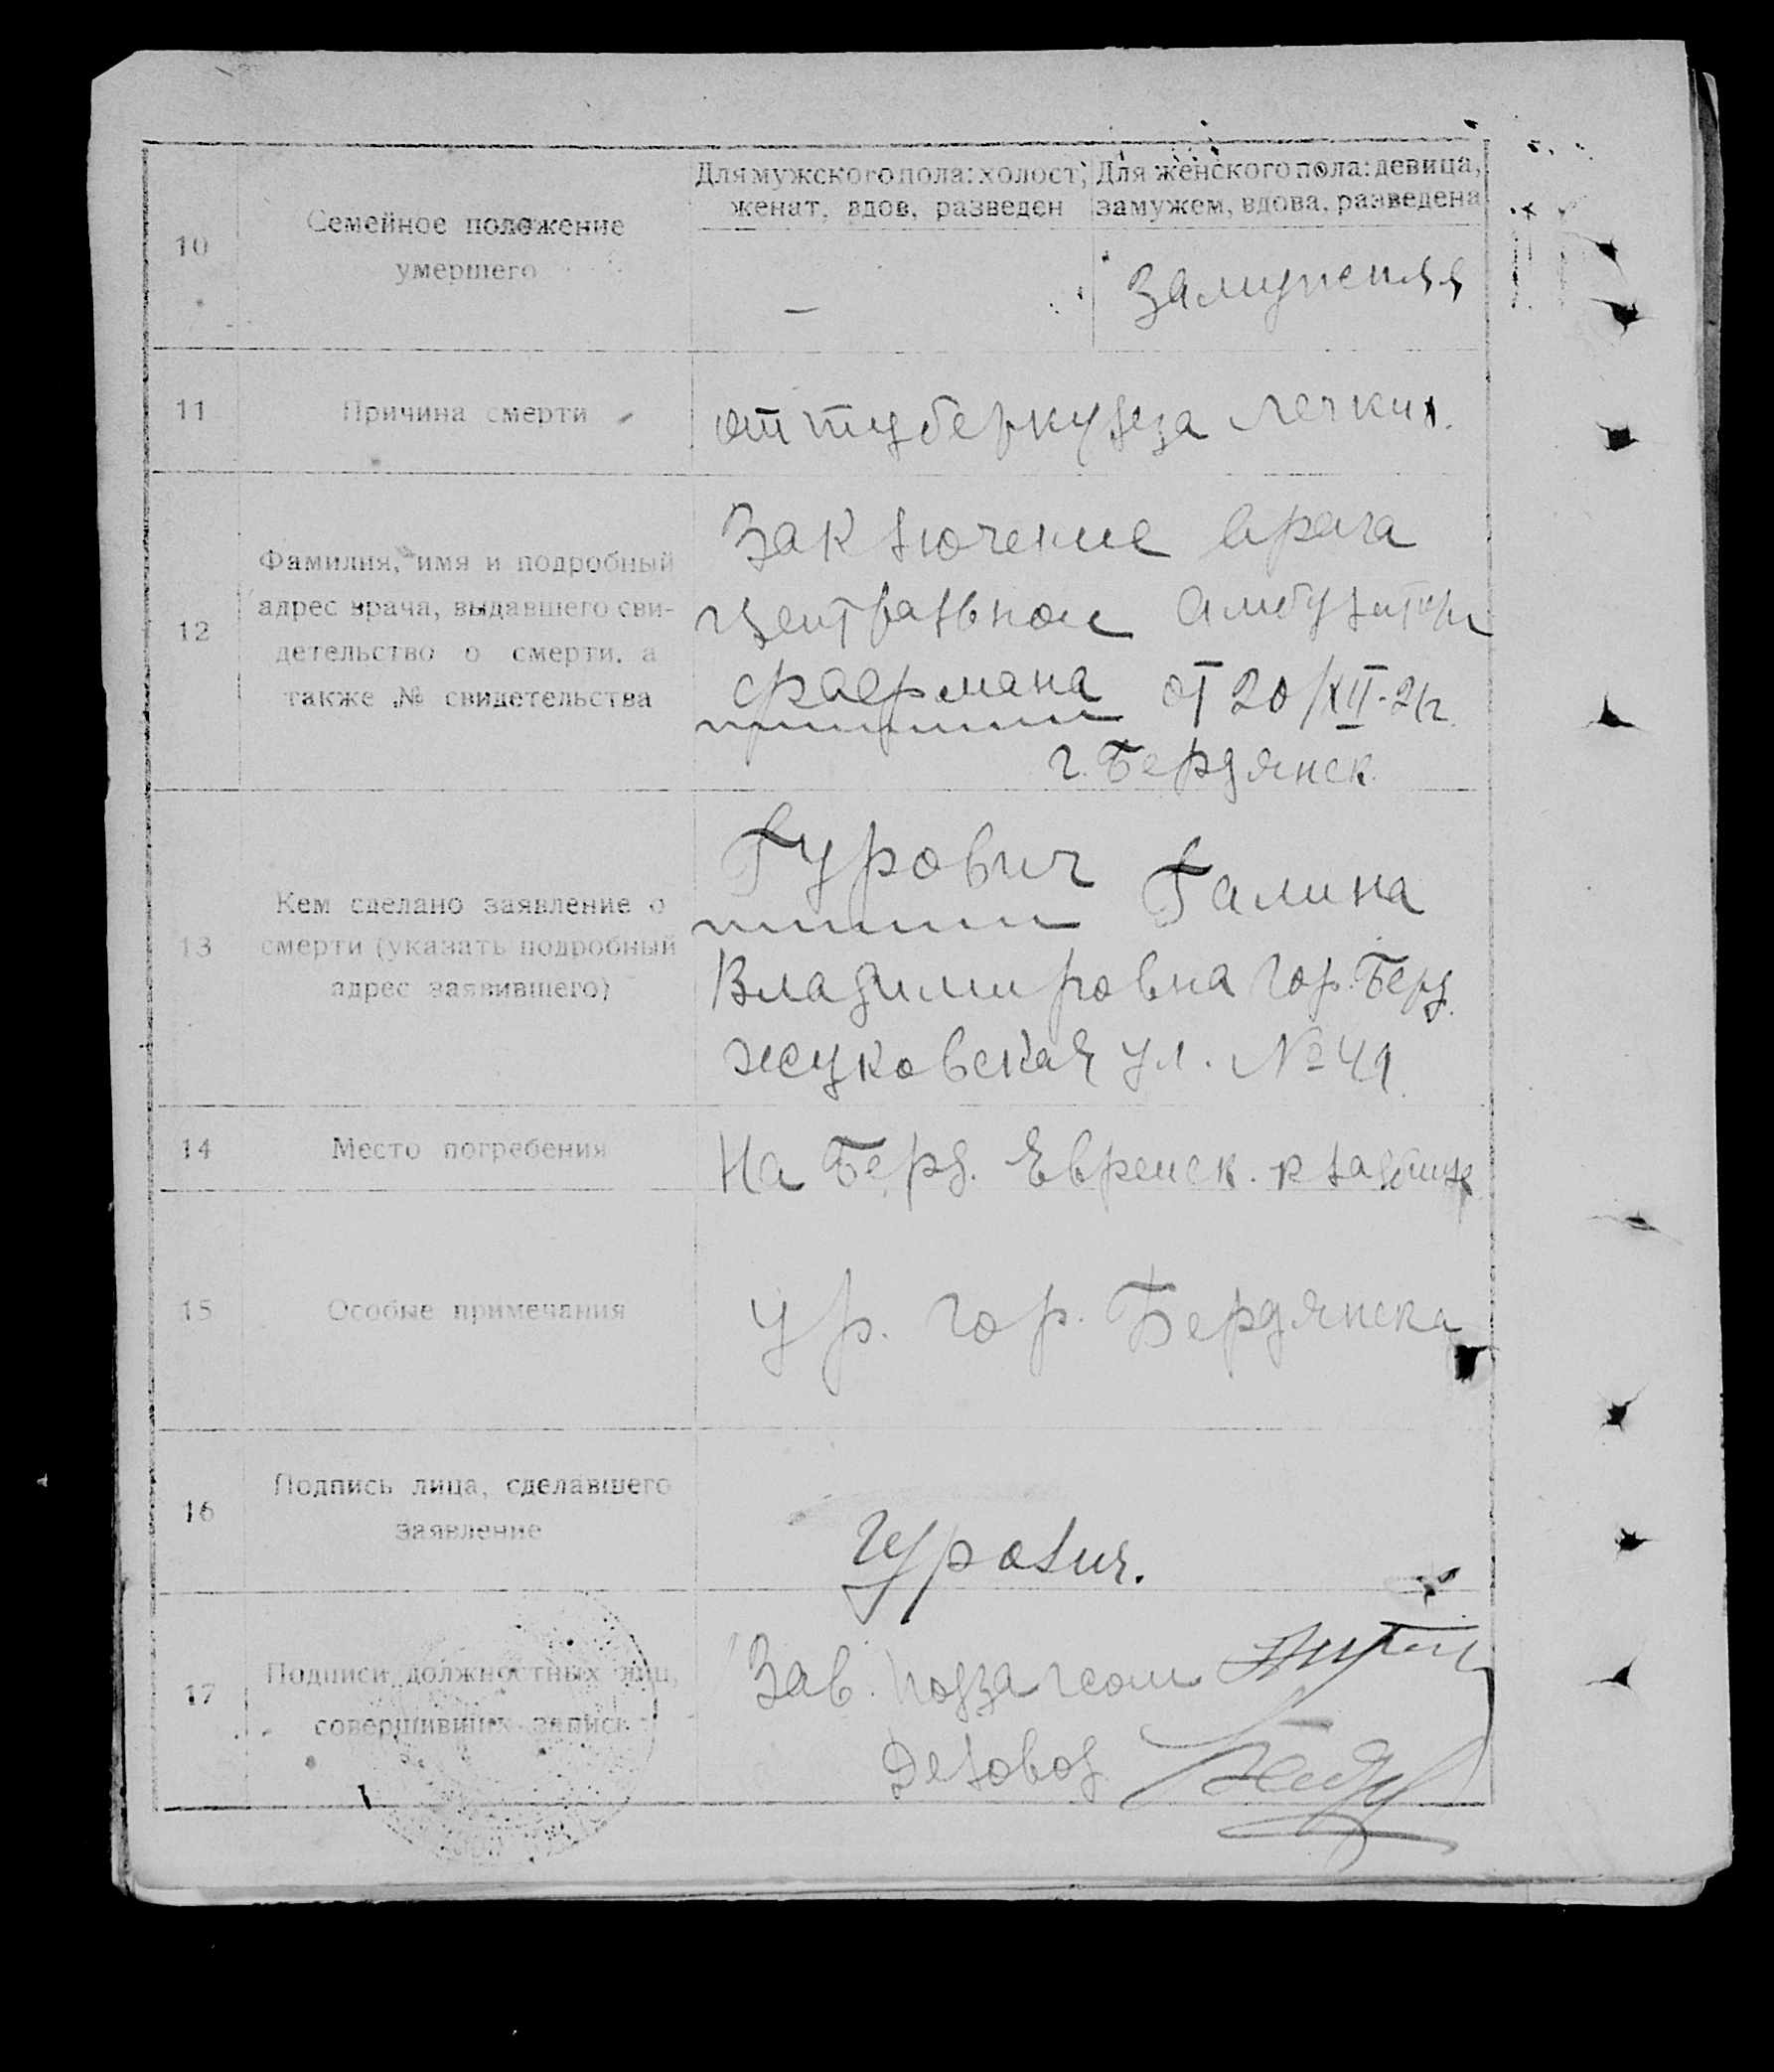 10
Семейное положение
умершего
Для мужского пола: холост,
женат, вдов, разведен
Для женского пола: девица,
замужем, вдова, разведена
—
Замужняя
11
Причина смерти
от туберкулеза легких.
12
Фамилия, имя и подробный
адрес врача, выдавшего сви-
детельство о смерти, а
также № свидетельства
Заключение врача
Центральной Амбулатори
Фаермана от 20/XII-21г.
г. Бердянск.
13
Кем сделано заявление о
смерти (указать подробный
адрес заявившего)
Гурович Галина
Владимировна Гор. Берд.
Жуковская ул. № 41
14
Место погребения
На Берд. Евреиск. кладбище
15
Особые примечания
ур. Гор. Бердянска
16
Подпись лица, сделавшего
заявление
Гурович.
17
Подписи должностных лиц,
совершивших запись
Зав. подзагсом
Деловод